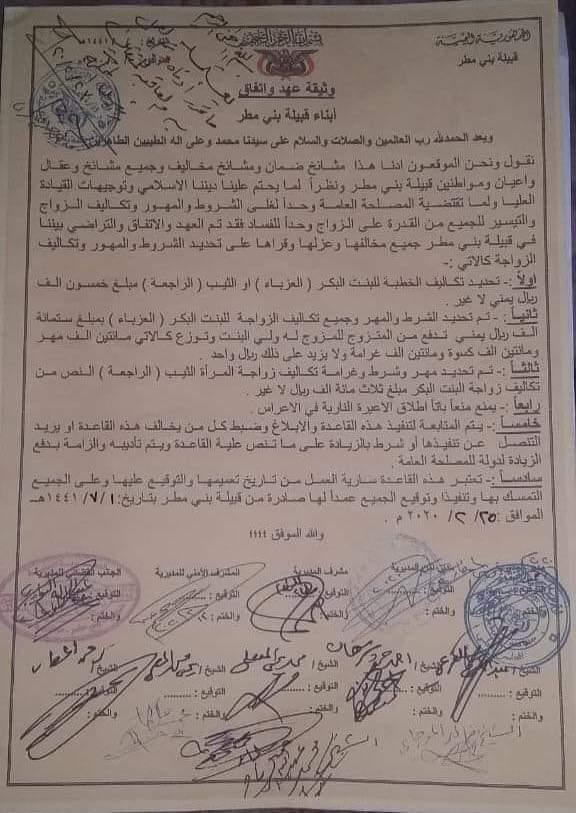 بسم الله الرحمن الرحيم
الجمهورية اليمنية
قبيلة بني مطر
وثيقة عهد واتفاق
أبناء قبيلة بني مطر
وبعد الحمدلله رب العالمين والصلات والسلام على سيدنا محمد وعلى اله الطيبين الطاهرين
نقول ونحن الموقعون ادنا هذا مشائخ ضمان ومشائخ مخاليف وجميع مشائخ وعقال
واعيان ومواطنين قبيلة بني مطر ونظراً لما يحتم علينا ديننا الاسلامي وتوجيهات القيادة
العليا ولما تقتضية المصلحة العامة وحداً لغلى الشروط والمهور وتكاليف الزواج
والتيسير للجميع من القدرة على الزواج وحداً للفساد فقد تم العهد والاتفاق والتراضي بيننا
في قبيلة بني مطر جميع مخالفها وعزلها وقراها على تحديد الشروط والمهور وتكاليف
الزواجة كالاتي :-
اولاً :- تحديد تكاليف الخطبة للبنت البكر ( العزباء ) او الثيب ( الراجعة ) مبلغ خمسون الف
ريال يمني لا غير .
ثانياً :- تم تحديد الشرط والمهر وجميع تكاليف الزواجة للبنت البكر ( العزباء ) بمبلغ ستمائة
الف ريال يمني تدفع من المتزوج للمزوج له ولي البنت وتوزع كالاتي مائتين الف مهر
ومائتين الف كسوة ومائتين الف غرامة ولا يزيد على ذلك ريال واحد .
ثالثاً :- تم تحديد مهر وشرط وغرامة تكاليف زواجة المرأة الثيب ( الراجعة ) النص من
تكاليف زواجة البنت البكر مبلغ ثلاث مائة الف ريال لا غير .
رابعاً :- يمنع منعاً باتاً اطلاق الاعيرة النارية في الاعراس .
خامساً :- يتم المتابعة لتنفيذ هذه القاعدة والابلاغ وضبط كل من يخالف هذه القاعدة او يريد
التنصل عن تنفيذها أو شرط بالزيادة على ما تنص علية القاعدة ويتم تأديبه والزامة بدفع
الزيادة لدولة للمصلحة العامة .
سادساً :- تعتبر هذه القاعدة سارية العمل من تاريخ تعميمها والتوقيع عليها وعلى الجميع
التمسك بها وتنفيذا وتوقيع الجميع عمداً لها صادرة من قبيلة بني مطر بتاريخ: ١ /٧ /١٤٤١هـ
الموافق : ٢٥/ ٢/ ٢٠٢٠ م .
والله الموفق ،،،،
مشرف المديرية
المشرف الأمني للمديرية
الجانب القضائي للمديرية
التوقيع :
التوقيع :
التوقيع :
التوقيع :
والختم :
والختم :
والختم :
والختم :
الشيخ /
الشيخ /
الشيخ /
الشيخ /
الشيخ /
التوقيع :
التوقيع :
التوقيع :
التوقيع :
التوقيع :
والختم :
والختم :
والختم :
والختم :
والختم :